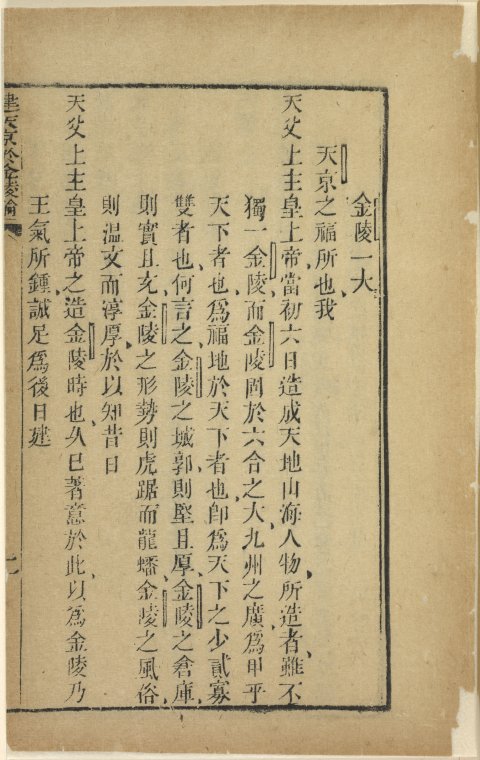 金陵一大
天京之福所也我
天父上主皇上帝當初六日造成天地山海人物所造者雖不
獨一金陵而金陵固於六合之大九州之廣爲甲乎
天下者也爲福地於天下者也卽爲天下之少貳寡
雙者也何言之金陵之城郭則堅且厚金陵之倉庫
則實且充金陵之形勢則虎踞而龍蟠金陵之風俗
則温文而淳厚於以知昔日
天父上主皇上帝之造金陵時也久已著意於此以爲金陵乃
王氣所鍾誠足爲後日建
建天京於金陵論